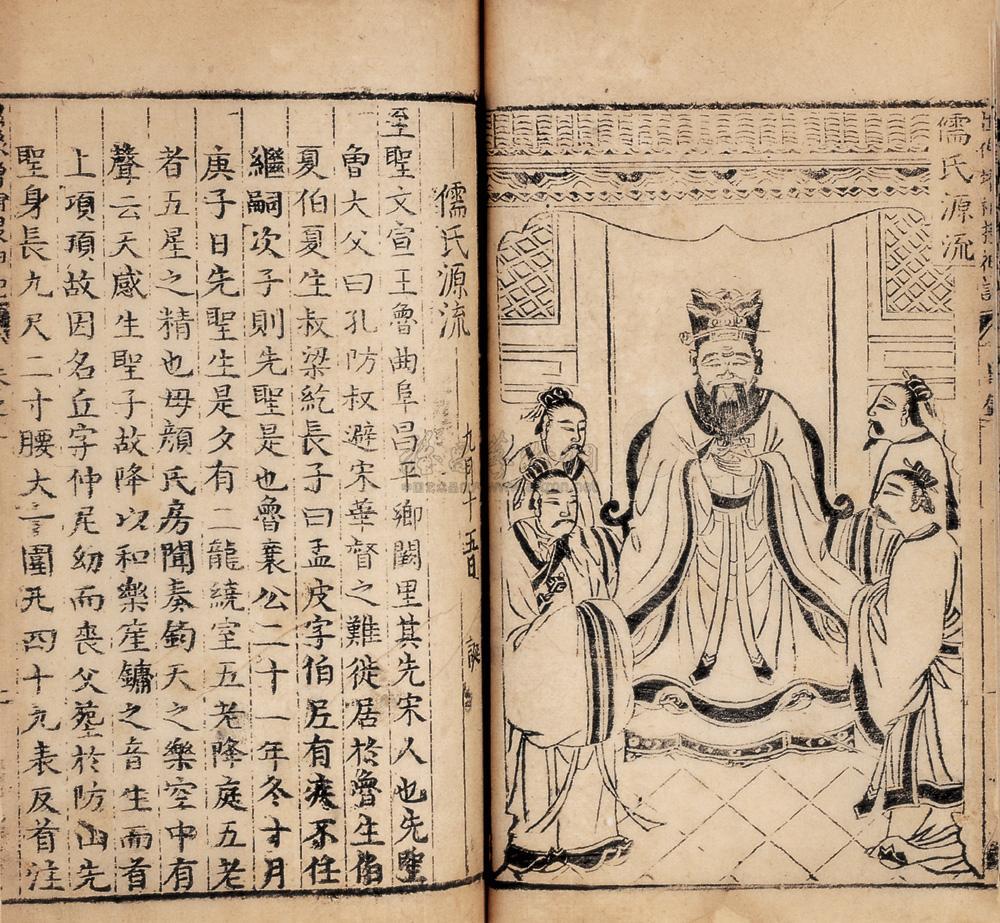 儒氏源流
儒氏源流
九月十五日
誕
至聖文宣王魯曲阜昌平鄉闕里其先宋人也先聖
魯大父曰孔防叔避宋華督之難徙居於魯生伯
夏伯夏生叔梁紇長子曰孟皮字伯尼有疾不任
繼嗣次子則先聖是也魯襄公二十一年冬十月
庚子日先聖生是夕有二龍繞室五老降庭五老
者五星之精也母顏氏房聞奏鈞天之樂空中有
聲云天感生聖子故降以和樂笙鏞之音生而首
上項項故因名丘字仲尼幼而喪父塟於防山先
聖身長九尺二寸腰大圍凡四十九表反首注